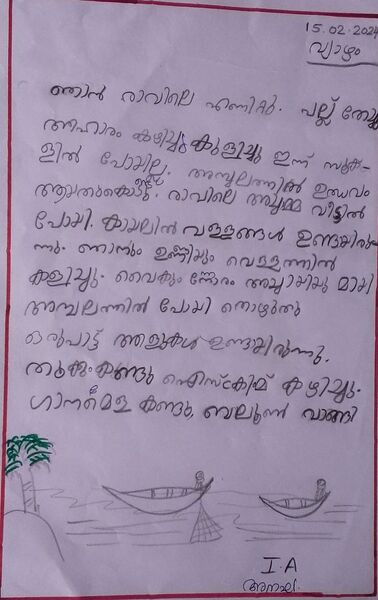 15.02.2024
വ്യാഴം
ഞാൻ രാവിലെ എണിറ്റു. പല്ല് തേച്ചു
ആഹാരം കഴിച്ചു കുളിച്ചു ഇന്ന് സ്കൂ
ളിൽ പോയില്ല. അമ്പലത്തിൽ ഉത്സവം
ആയതുകൊണ്ട്. രാവിലെ അച്ചമ്മ വീട്ടിൽ
പോയി. കായലിൽ വള്ളങ്ങൾ ഉണ്ടായിരു
ന്നു. ഞാനും ഉണ്ണിയും വെള്ളത്തിൽ
കളിച്ചു. വൈകും ന്നേരം അച്ഛായിയു മായി
അമ്പലത്തിൽ പോയി തൊഴുതു
ഒരുപാട് ആളുകൾ ഉണ്ടായിരുന്നു.
കണ്ടു ഐസ്ക്രിം കഴിച്ചു.
ഗാനമേള കണ്ടു, ബലൂൺ വാങ്ങി
I.A